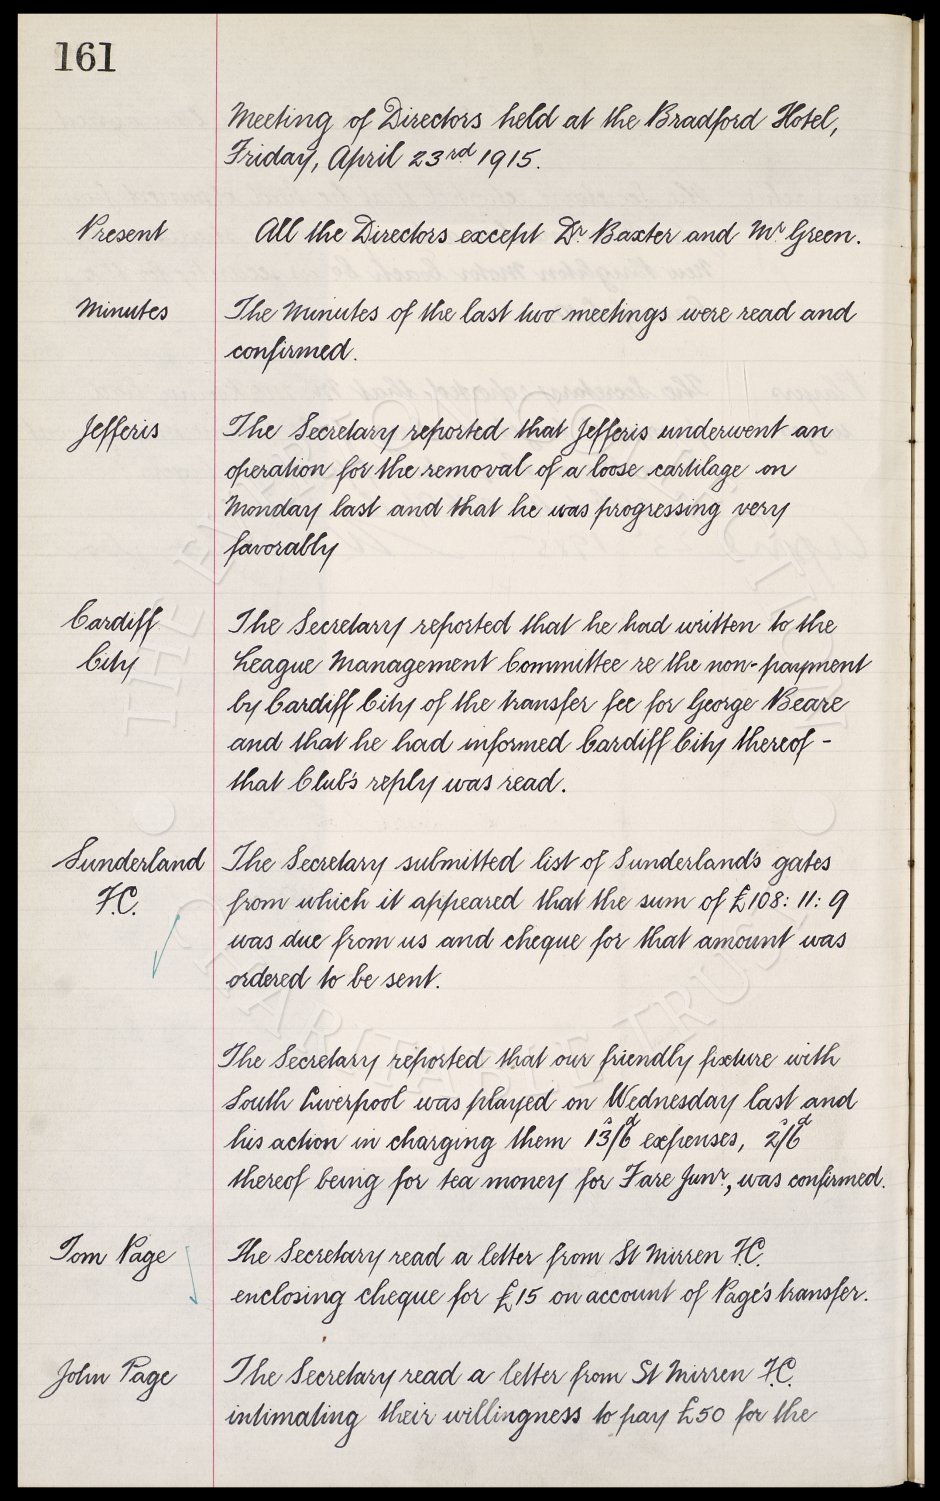 161
Meeting of Directors held at the Bradford Hotel,
Friday, April 23rd 1915.
Present
All the Directors except Dr Baxter and Mr Green.
Minutes
The Minutes of the last two meetings were read and
confirmed.
Jefferis
The Secretary reported that Jefferis underwent an
operation for the removal of a loose cartilage on
Monday last and that he was progressing very
favorably
Cardiff
City
The Secretary reported that he had written to the
League Management Committee re the non-payment
by Cardiff City of the transfer fee for George Beare
and that he had informed Cardiff City thereof -
that Club's reply was read.
Sunderland
F.C.
The Secretary submitted list of Sunderland's gates
from which it appeared that the sum of £108: 11: 9
was due from us and cheque for that amount was
ordered to be sent.
The Secretary reported that our friendly fixture with
South Liverpool was played on Wednesday last and
his action in charging them 13s/6d expenses, 2s/6d
thereof being for tea money for Fare Junr, was confirmed.
Tom Page
The Secretary read a letter from St Mirren F.C.
enclosing cheque for £15 on account of Page's transfer.
John Page
The Secretary read a letter from St Mirren F.C.
intimating their willingness to pay £50 for the
THE EVERTON COLLECTION
CHARITABLE TRUST